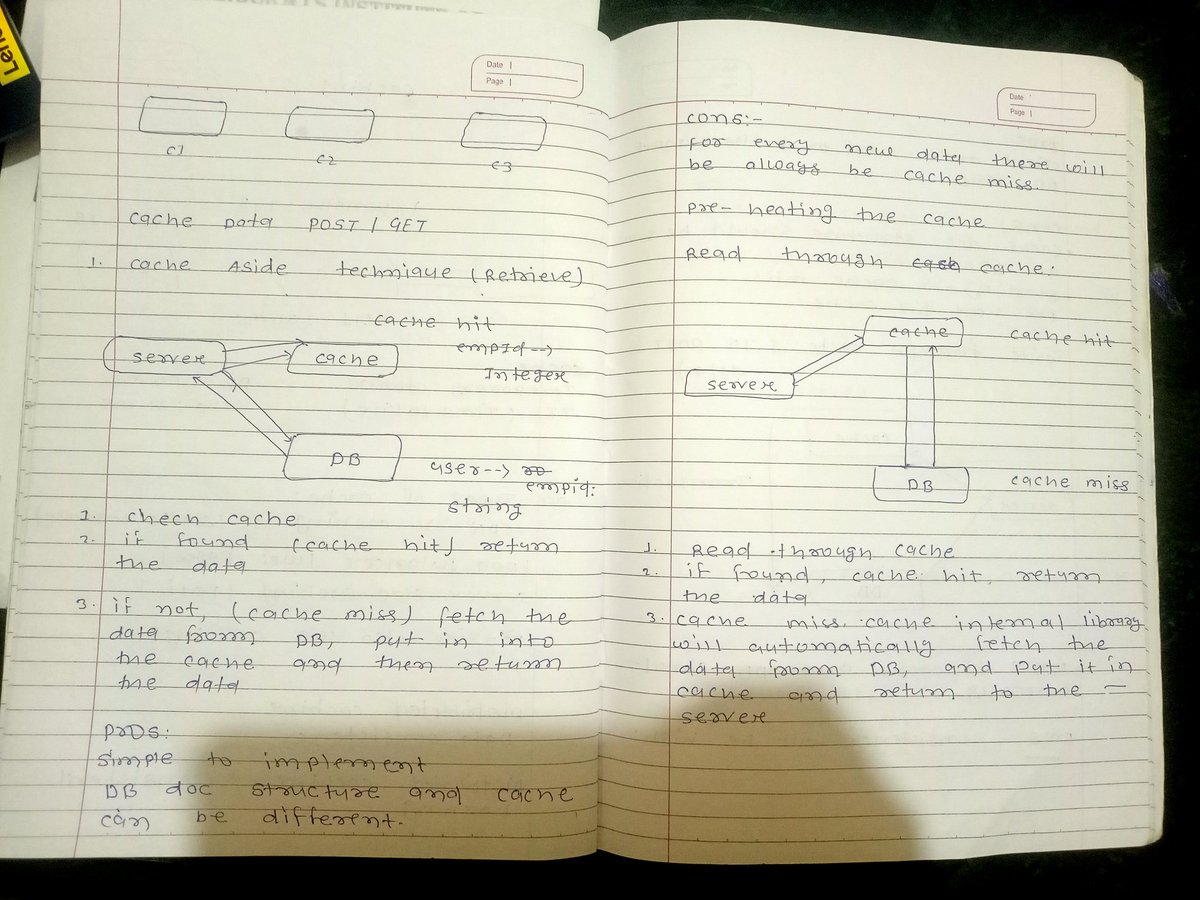 Leno
Date
Page
C1
C2
C3
Cache Data POST / GET
1. Cache Aside technique (Retrieve)
cache hit
server
cache
empId-->
Integer
DB
user-->
empid:
string
1. check cache
2. if found (cache hit) return
the data
3. if not, (cache miss) fetch the
data from DB, put in into
the cache and then return
the data
Pros:
Simple to implement
DB doc structure and cache
can be different.
Date
Page
cons:-
For every new data there will
be always be cache miss.
Pre-heating the cache
Read through cache.
cache
cache hit
server
DB
cache miss
1. Read through cache
2. if found, cache hit, return
the data
3. cache miss. cache internal library
will automatically fetch the
data from DB, and put it in
cache and return to the =
server